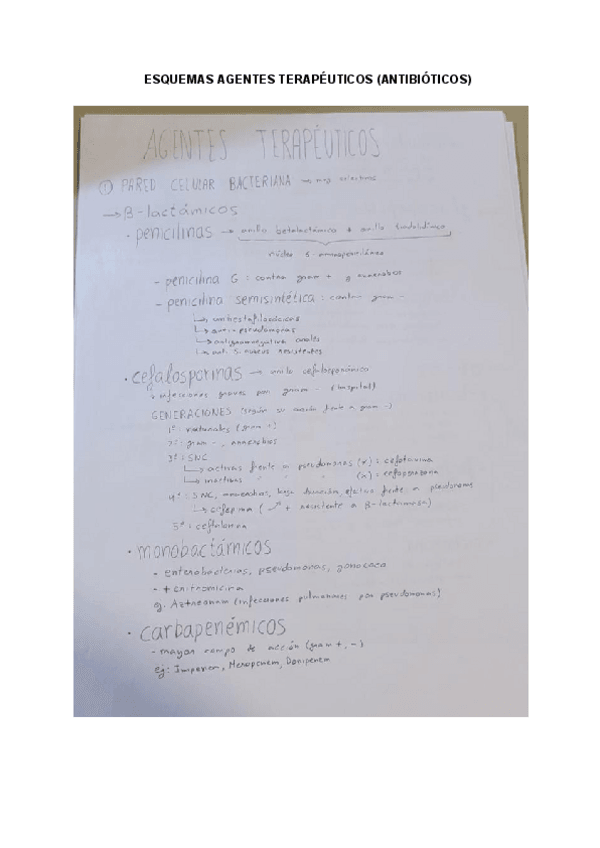 ESQUEMAS AGENTES TERAPÉUTICOS (ANTIBIÓTICOS)
AGENTES TERAPÉUTICOS
① PARED CELULAR BACTERIANA → muy selectivos
→ β-lactámicos
· penicilinas → anillo betalactámico + anillo
núcleo 6-aminopenicilánico
- penicilina G: contra gram + y anaerobios
- penicilina semisintética: contra gram -
↳ antiestafilocócicas
↳ anti-pseudomonas
↳ orales
↳ resistentes
· cefalosporinas → anillo cefalosporánico
infecciones graves por gram - (hospital)
GENERACIONES (según su acción frente a gram -)
1ª: naturales (gram +)
2ª: gram -, anaerobios
3ª: SNC
↳ activas frente a pseudomonas (r):
↳ inactivas " " " (a):
4ª: SNC, anaerobios, baja efectos frente a pseudomonas
↳ cefepima ( + resistente a β-lactamasa)
5ª:
· monobactámicos
- enterobacterias, pseudomonas, gonococo
- +
ej: Aztreonam (infecciones pulmonares por pseudomonas)
· carbapenémicos
- mayor campo de acción (gram +, -)
ej: Imipenem, Meropenem, Doripenem